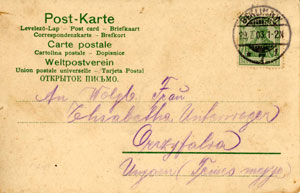 Post-Karte
Levelező-Lap — Post card — Briefkaart
Correspondenskarte — Brefkort
Carte postale
Cartolina postale — Dopisnice
Weltpostverein
Union postale universelle — Tarjeta Postal
ОТКРЫТОЕ ПИСЬМО.
An Wolgb. Frau
Elisabetha
Orczyfalva
Ungarn (Temes megye)